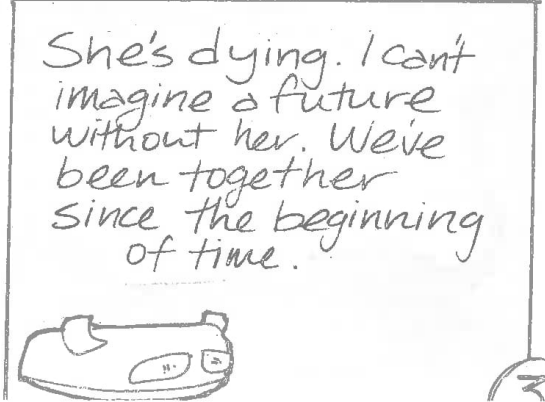 She's dying. I can't
imagine a future
without her. We've
been together
since the beginning
of time.
3